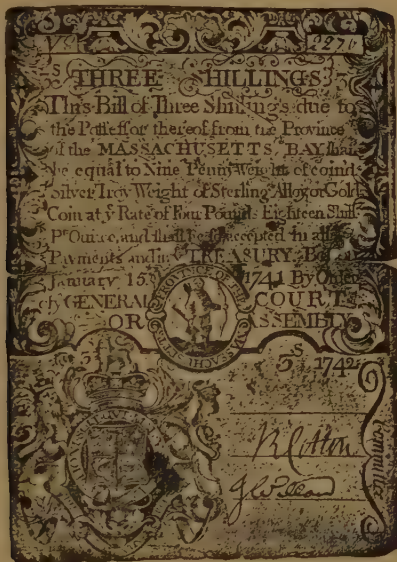 2276
THREE SHILLINGS
This Bill of Three Shillings due to
the Possessor thereof from the Province
of the MASSACHUSETTS BAY shall
be equal to Nine Penny Weight of coind
Silver Troy Weight of Sterling Alloy or Gold
Coin at yͤ Rate of Four Pounds Eighteen Shill
Pʳ Ounce, and shall be accepted in all
Payments and in TREASURY. Boston
January 15 1741 By Order
of yͤ GENERAL COURT
OR ASSEMBLY
PROVINCE OF THE MASSACHUSETTS
3ˢ 3ˢ 1742
R Cotton
Committee